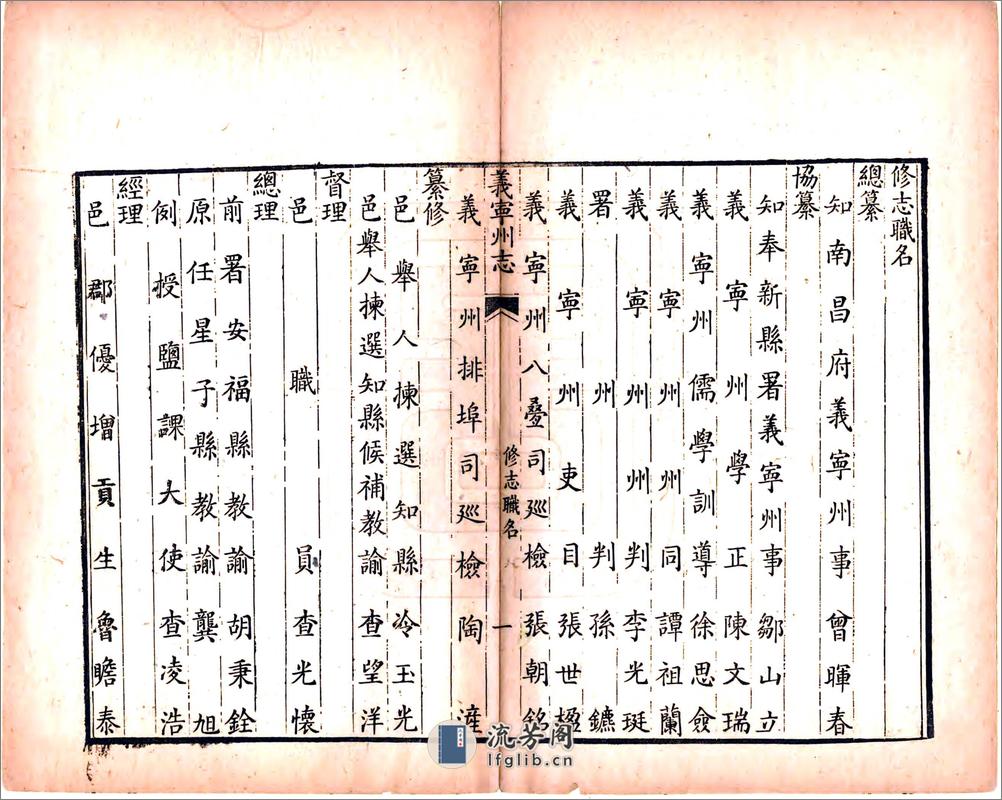 修志職名
總纂
知南昌府義寧州事曾暉春
協纂
知奉新縣署義寧州事鄒山立
義寧州學正陳文瑞
義寧州儒學訓導徐思僉
義寧州州同譚祖蘭
義寧州州判李光珽
署州判孫鑣
義寧州吏目張世楹
義寧州八疊司巡檢張朝銘
義寧州志
修志職名
一
義寧州排埠司巡檢陶滻
纂修
邑舉人揀選知縣冷玉光
邑舉人揀選知縣候補教諭查望洋
督理
邑職員查光懷
總理
前署安福縣教諭胡秉銓
原任星子縣教諭龔旭
例授鹽課大使查凌浩
經理
邑郡優增貢生魯瞻泰
流芳阁
lfglib.cn